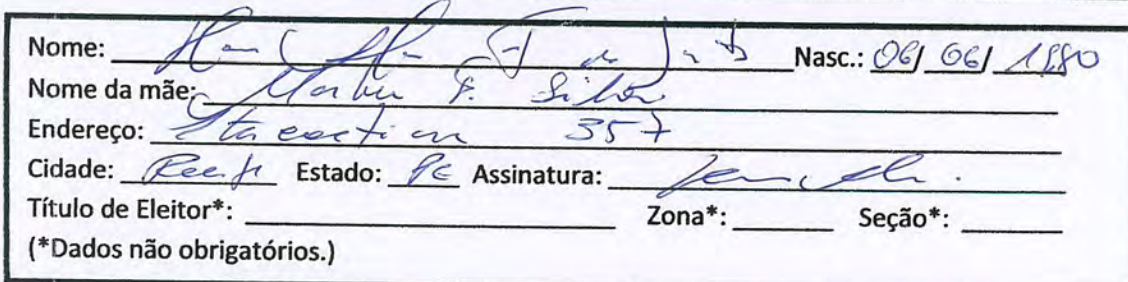 Nome: Nasc.: 06/06/1980
Nome da mãe: F. Silva
Endereço: 357
Cidade: Recife Estado: PE Assinatura:
Título de Eleitor*: Zona*: Seção*:
(*Dados não obrigatórios.)